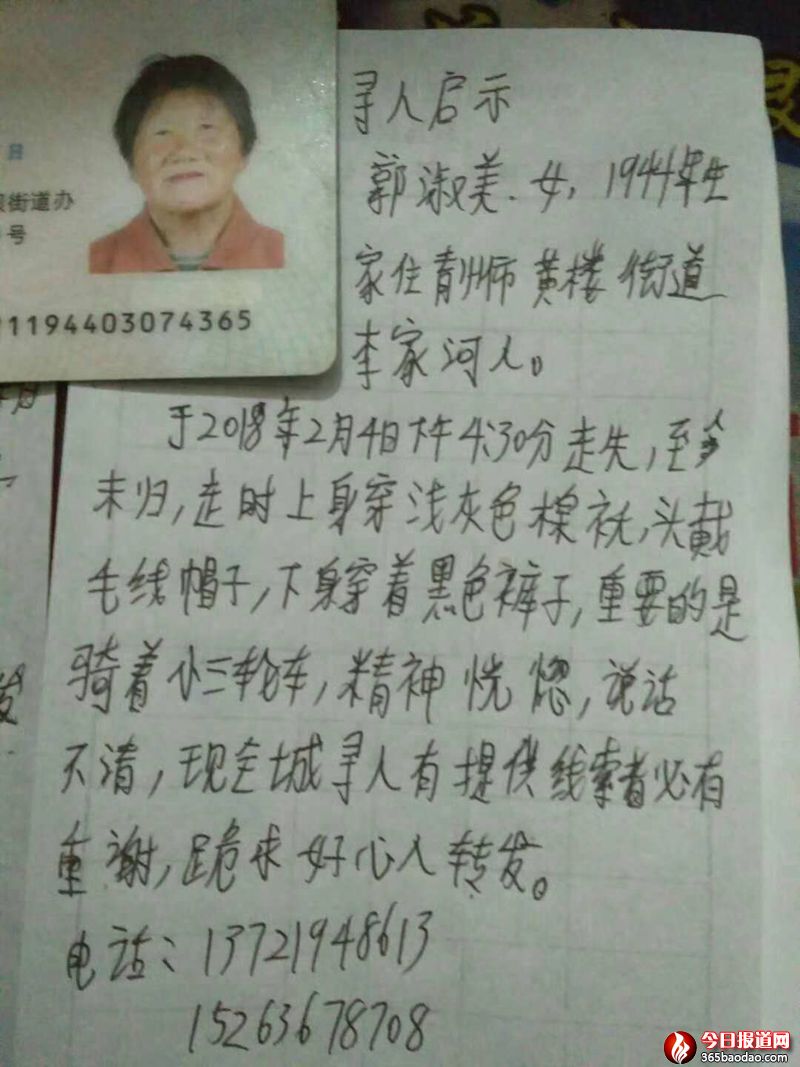 日
街道办
号
1194403074365
寻人启示
郭淑美、女，1944年生
家住青州市黄楼街道
李家河人。
于2018年2月4日下午4:30分走失，至今
未归，走时上身穿浅灰色棉袄，头戴
毛线帽子，下身穿着黑色裤子，重要的是
骑着小三轮车，精神恍惚，说话
不清，现全城寻人有提供线索者必有
重谢，跪求好心人转发。
电话：13721948613
15263678708
今日报道网
365baodao.com